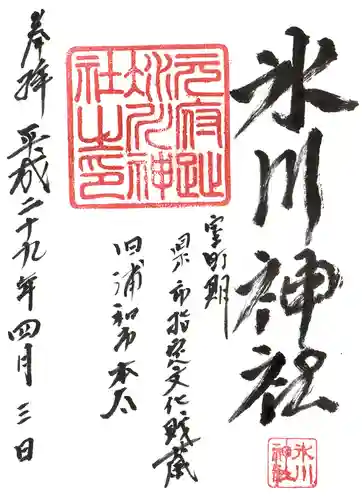 氷川神社
室町期
県市指定文化財蔵
旧浦和市本太
元府趾
氷川神
社之印
奉拝 平成二十九年四月三日
氷川
神社